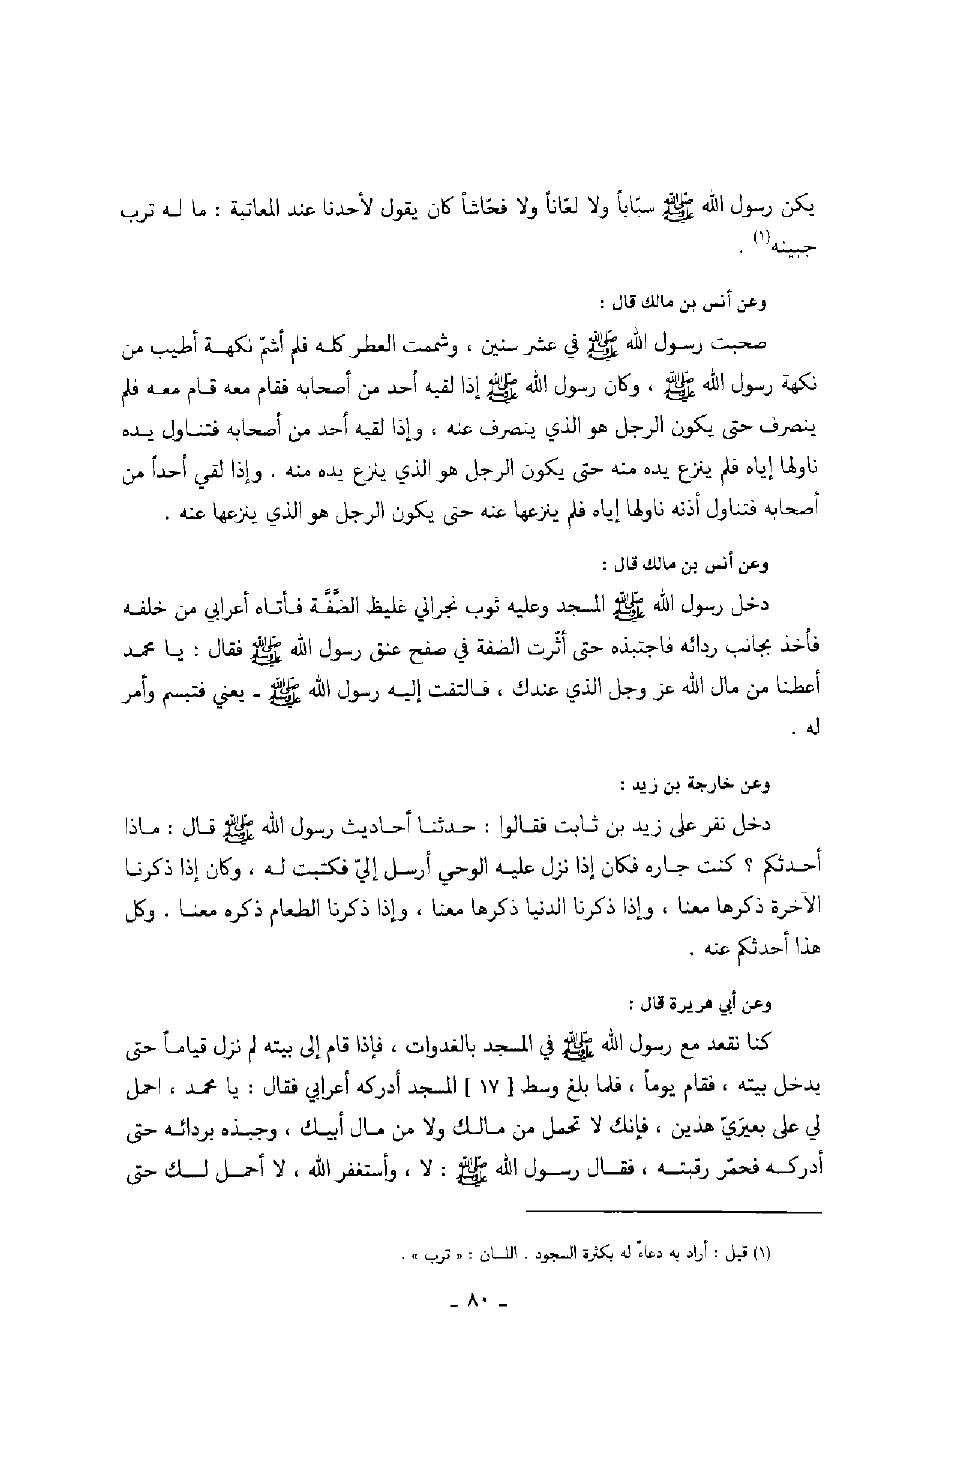 يكن رسول الله ﷺ سبّاباً ولا لعّاناً ولا فحّاشاً كان يقول لأحدنا عند المعاتبة : ما له ترب
جبينه(١) .
وعن أنس بن مالك قال :
صحبت رسول الله ﷺ في عشر سنين ، وشممت العطر كله فلم أشمّ نكهة أطيب من
نكهة رسول الله ﷺ ، وكان رسول الله ﷺ إذا لقيه أحد من أصحابه فقام معه قام معه فلم
ينصرف حتى يكون الرجل هو الذي ينصرف عنه ، وإذا لقيه أحد من أصحابه فتناول يده
ناولها إياه فلم ينزع يده منه حتى يكون الرجل هو الذي ينزع يده منه . وإذا لقي أحداً من
أصحابه فتناول أذنه ناولها إياه فلم ينزعها عنه حتى يكون الرجل هو الذي ينزعها عنه .
وعن أنس بن مالك قال :
دخل رسول الله ﷺ المسجد وعليه ثوب نجراني غليظ الضَّفَّة فأتاه أعرابي من خلفه
فأخذ بجانب ردائه فاجتبذه حتى أثّرت الضفة في صفح عنق رسول الله ﷺ فقال : يا محمد
أعطنا من مال الله عز وجل الذي عندك ، فالتفت إليه رسول الله ﷺ ـ يعني فتبسم وأمر
له .
وعن خارجة بن زيد :
دخل نفر على زيد بن ثابت فقالوا : حدثنا أحاديث رسول الله ﷺ قال : ماذا
أحدثكم ؟ كنت جاره فكان إذا نزل عليه الوحي أرسل إليّ فكتبت له ، وكان إذا ذكرنا
الآخرة ذكرها معنا ، وإذا ذكرنا الدنيا ذكرها معنا ، وإذا ذكرنا الطعام ذكره معنا . وكل
هذا أحدثكم عنه .
وعن أبي هريرة قال :
كنا نقعد مع رسول الله ﷺ في المسجد بالغدوات ، فإذا قام إلى بيته لم نزل قياماً حتى
يدخل بيته ، فقام يوماً ، فلما بلغ وسط [ ١٧ ] المسجد أدركه أعرابي فقال : يا محمد ، احمل
لي على بعيرَيّ هذين ، فإنك لا تحمل من مالك ولا من مال أبيك ، وجبذه بردائه حتى
أدركه فحمّر رقبته ، فقال رسول الله ﷺ : لا ، وأستغفر الله ، لا أحمل لك حتى
(١) قيل : أراد به دعاءً له بكثرة السجود . اللسان : « ترب » .
ـ ٨٠ ـ